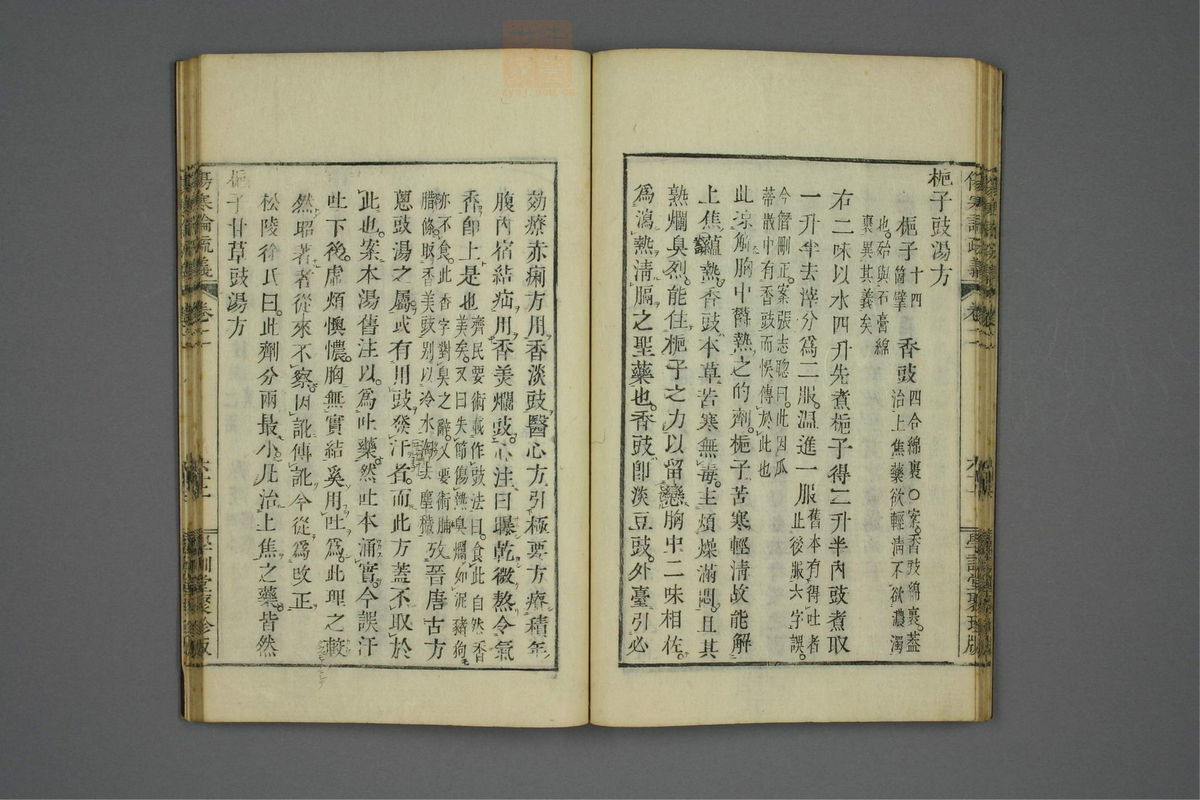 梔子豉湯方
梔子十四箇擘 香豉四合綿裹○案香豉綿裹蓋治上焦藥欲輕清不欲濃濁也殆與石膏綿裹異其義矣
右二味以水四升先煮梔子得二升半內豉煮取
一升半去滓分爲二服溫進一服舊本有得吐者止後服六字誤
今僭刪正案張志聰曰此因瓜蒂散中有香豉而悞傳於此也
此涼解胸中鬱熱之的劑梔子苦寒輕清故能解
上焦蘊熱香豉本草苦寒無毒主煩燥滿悶且其
熟爛臭烈能佳梔子之力以留戀胸中二味相佐
爲瀉熱清膈之聖藥也香豉卽淡豆豉外臺引必
効療赤痢方用香淡豉醫心方引極要方療積年
腹內宿結疝用香美爛豉心注曰曝乾微熬令氣
香卽上是也齊民要術載作豉法曰食此自然香美矣又曰失節傷熱臭爛如泥豬狗
亦不食此香字對臭之辭又要術脯臘條取香美豉别以冷水淘去塵穢攷晉唐古方
蔥豉湯之屬或有用豉發汗者而此方蓋不取於
此也案本湯舊注以爲吐藥然吐本涌實今誤汗
吐下後虛煩懊憹胸無實結奚用吐爲此理之較
然昭著者從來不察因訛傳訛今從爲改正
松陵徐氏曰此劑分兩最小凡治上焦之藥皆然
梔子甘草豉湯方
傷寒論疏義 卷二
學訓堂聚珍版